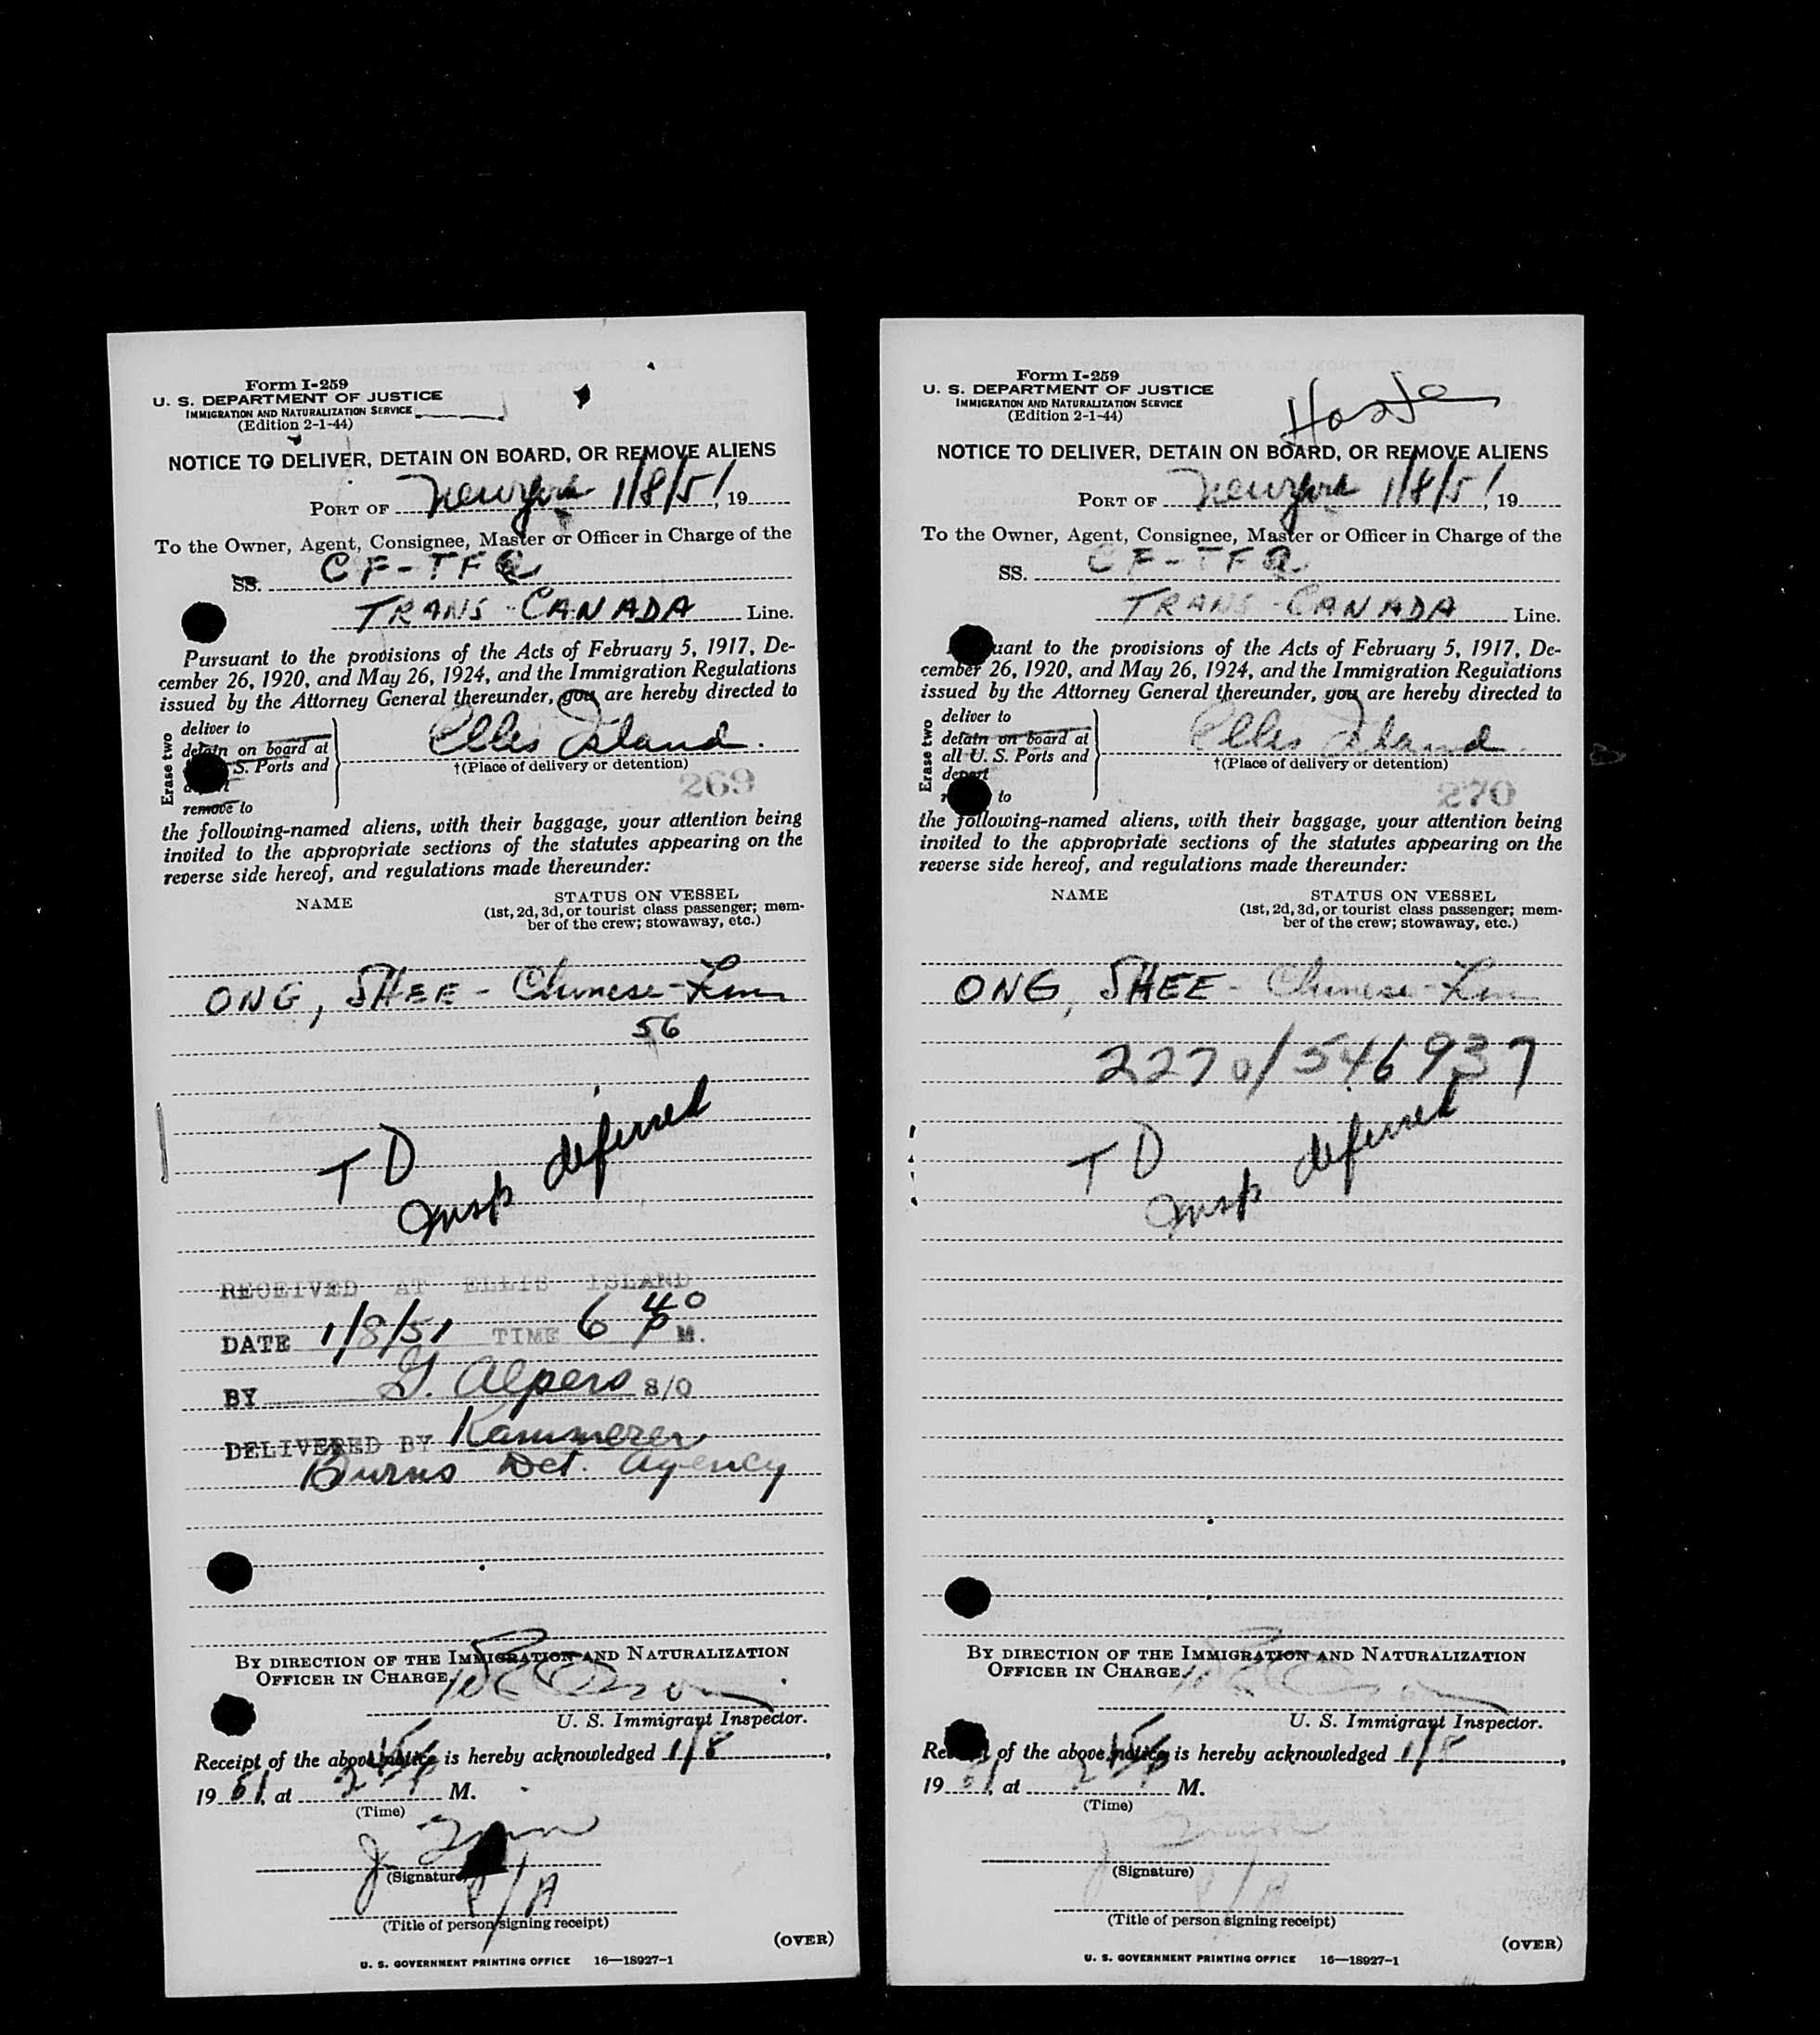 Form I-259
U. S. DEPARTMENT OF JUSTICE
IMMIGRATION AND NATURALIZATION SERVICE
(Edition 2-1-44)
NOTICE TO DELIVER, DETAIN ON BOARD, OR REMOVE ALIENS
PORT OF New York 1/8/51, 19
To the Owner, Agent, Consignee, Master or Officer in Charge of the
SS. CF-TFQ
TRANS-CANADA Line.
Pursuant to the provisions of the Acts of February 5, 1917, De-
cember 26, 1920, and May 26, 1924, and the Immigration Regulations
issued by the Attorney General thereunder, you are hereby directed to
Erase two
deliver to
detain on board at
S. Ports and
remove to
Ellis Island.
†(Place of delivery or detention)
269
the following-named aliens, with their baggage, your attention being
invited to the appropriate sections of the statutes appearing on the
reverse side hereof, and regulations made thereunder:
NAME
STATUS ON VESSEL
(1st, 2d, 3d, or tourist class passenger; mem-
ber of the crew; stowaway, etc.)
ONG, SHEE - Chinese-
56
T D
Insp deferred
RECEIVED AT ELLIS ISLAND
DATE 1/8/51 TIME 6 40 P M.
BY G. Alpers S/O
DELIVERED BY Kammerer
Burns Det. Agency
BY DIRECTION OF THE IMMIGRATION AND NATURALIZATION
OFFICER IN CHARGE
U. S. Immigrant Inspector.
Receipt of the above notice is hereby acknowledged 1/8,
1951, at M.
(Time)
J.
(Signature)
P/A
(Title of person signing receipt)
(OVER)
U. S. GOVERNMENT PRINTING OFFICE 16—18927-1
Form I-259
U. S. DEPARTMENT OF JUSTICE
IMMIGRATION AND NATURALIZATION SERVICE
(Edition 2-1-44)
NOTICE TO DELIVER, DETAIN ON BOARD, OR REMOVE ALIENS
PORT OF New York 1/8/51, 19
To the Owner, Agent, Consignee, Master or Officer in Charge of the
SS. CF-TFQ
TRANS-CANADA Line.
uant to the provisions of the Acts of February 5, 1917, De-
cember 26, 1920, and May 26, 1924, and the Immigration Regulations
issued by the Attorney General thereunder, you are hereby directed to
Erase two
deliver to
detain on board at
all U. S. Ports and
depart
to
Ellis Island.
†(Place of delivery or detention)
270
the following-named aliens, with their baggage, your attention being
invited to the appropriate sections of the statutes appearing on the
reverse side hereof, and regulations made thereunder:
NAME
STATUS ON VESSEL
(1st, 2d, 3d, or tourist class passenger; mem-
ber of the crew; stowaway, etc.)
ONG, SHEE - Chinese-
2270/546937
T D
Insp deferred
BY DIRECTION OF THE IMMIGRATION AND NATURALIZATION
OFFICER IN CHARGE
U. S. Immigrant Inspector.
of the above notice is hereby acknowledged 1/8,
1951, at M.
(Time)
J.
(Signature)
P/A
(Title of person signing receipt)
(OVER)
U. S. GOVERNMENT PRINTING OFFICE 16—18927-1